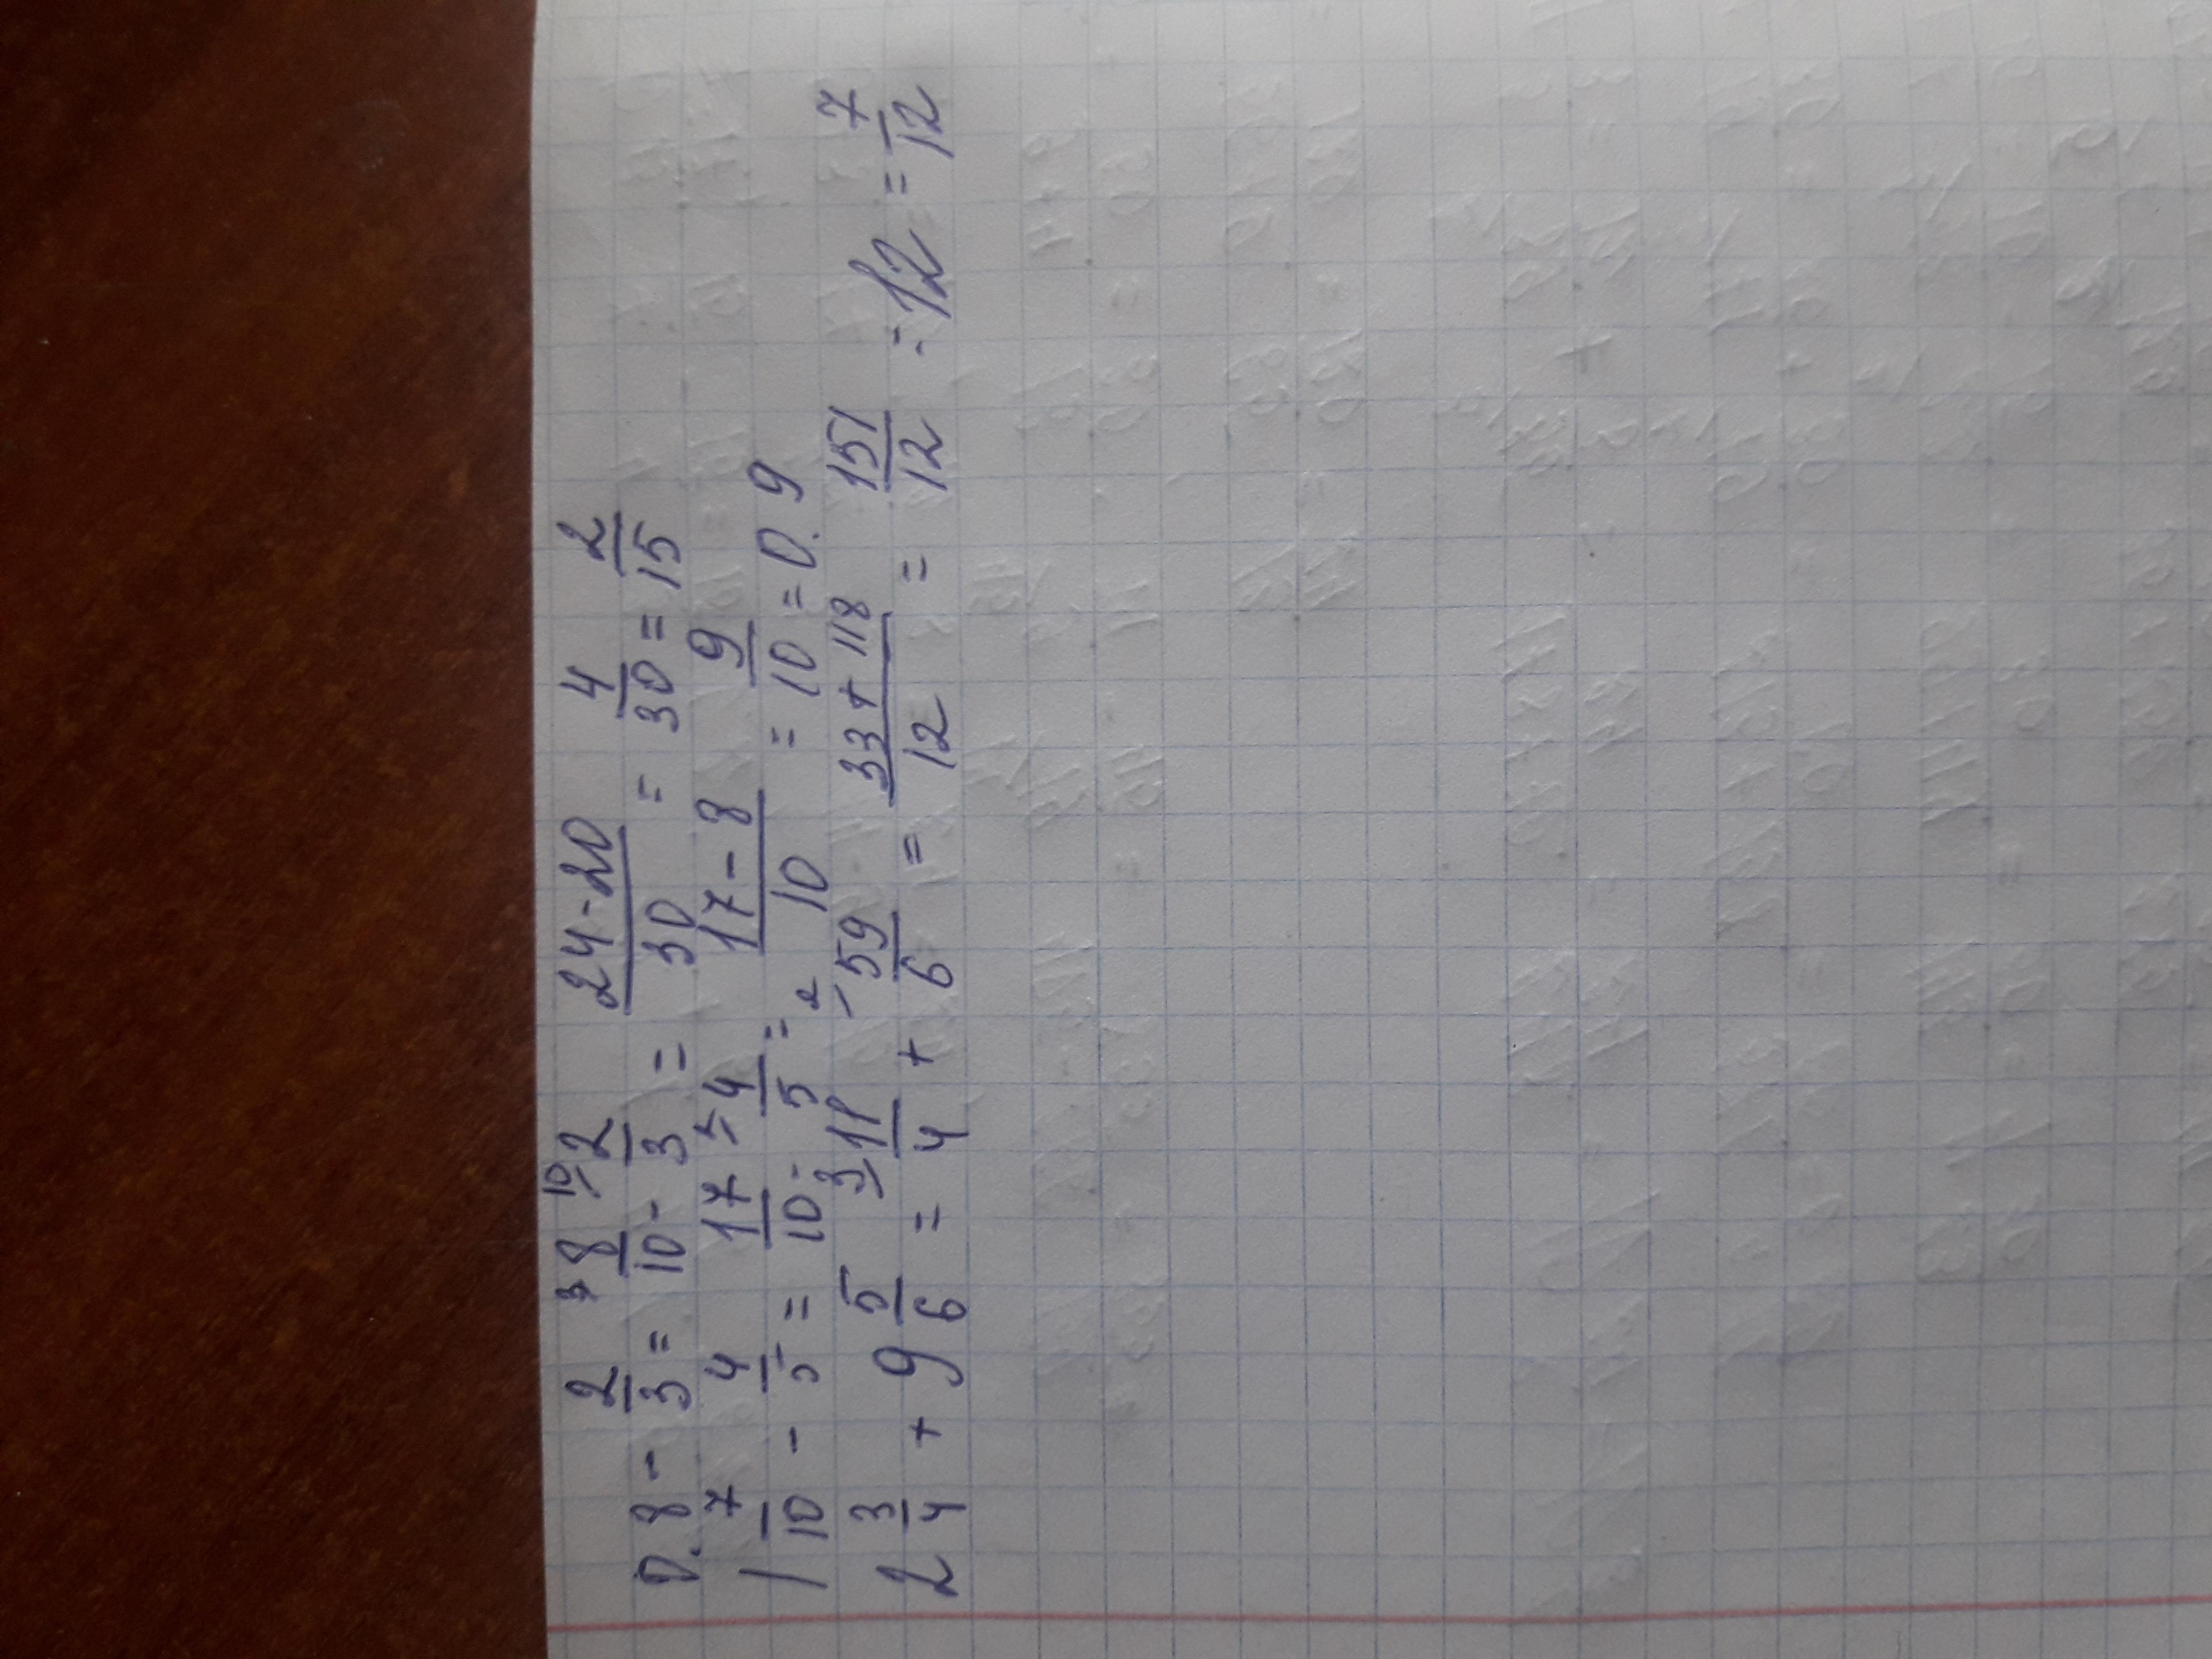 0.8 - 2/3 = 3) 8/10 - 10) 2/3 = 24-20/30 = 4/30 = 2/15
1 7/10 - 4/5 = 17/10 - 4/5 = 17-8/10 = 9/10 = 0.9
2 3/4 + 9 5/6 = 3) 11/4 + 2) 59/6 = 33+118/12 = 151/12 = 12 = 7/12